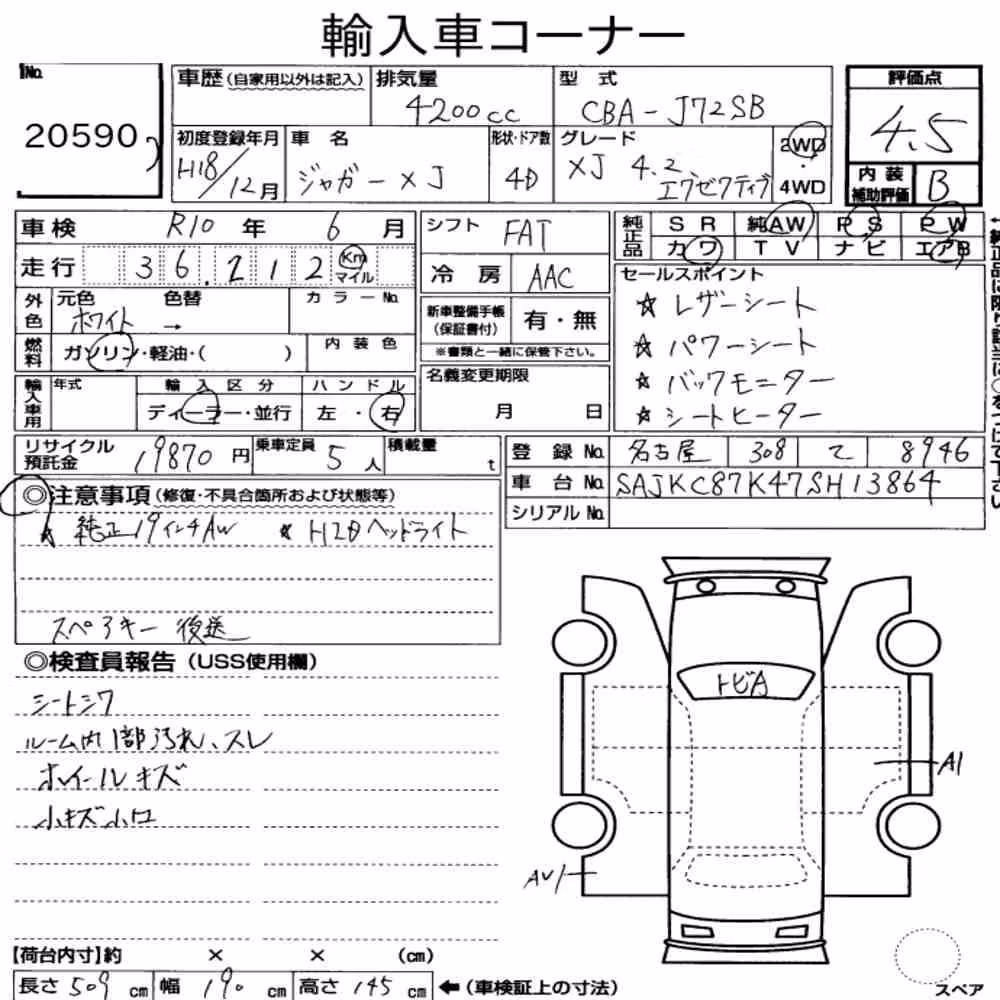 輸入車コーナー
No. 20590
車歴(自家用以外は記入) 排気量 4200cc 型式 CBA-J72SB 評価点 4.5
初度登録年月 H18/12月 車名 ジャガー XJ 形状・ドア数 4D グレード XJ 4.2 エグゼクティブ 2WD・4WD
内装補助評価 B
車検 R10年 6月 シフト FAT
純正品 SR 純AW PS PW
カワ TV ナビ エアB
走行 36,212 Km マイル 冷房 AAC
外色 元色 ホワイト 色替 → カラーNo.
新車整備手帳(保証書付) 有・無
※書類と一緒に保管下さい。
燃料 ガソリン・軽油・( ) 内装色
セールスポイント
☆ レザーシート
☆ パワーシート
☆ バックモニター
☆ シートヒーター
輸入車用 年式 輸入区分 ディーラー・並行 ハンドル 左・右
名義変更期限 月 日
リサイクル預託金 19870円 乗車定員 5人 積載量 t
登録No. 名古屋 308 て 8946
車台No. SAJKC87K47SH13864
シリアルNo.
◎注意事項(修復・不具合箇所および状態等)
☆ 純正19インチAW ☆ HIDヘッドライト
スペアキー後送
◎検査員報告(USS使用欄)
シートシワ
ルーム内1部汚れ、スレ
ホイールキズ
小キズ小凹
トビA
A1
AU1
【荷台内寸】約 × × (cm)
長さ 509 cm 幅 190 cm 高さ 145 cm ←(車検証上の寸法)
スペア